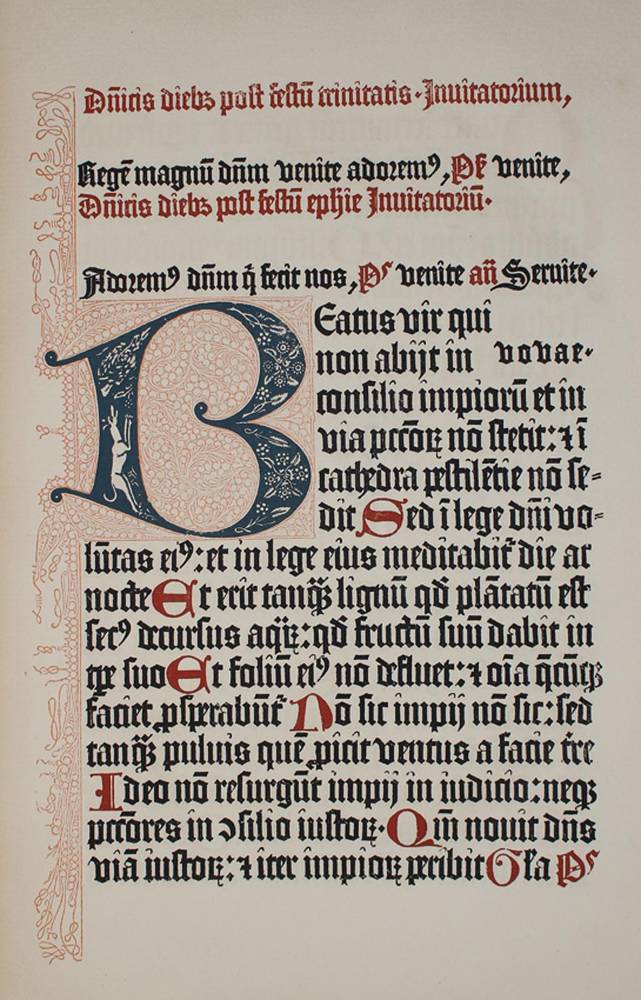 Dñicis diebꝫ post festū trinitatis · Inuitatorium,
Regē magnū dñm venite adoremꝰ, Ps̄ venite,
Dñicis diebꝫ post festū ephie Inuitatoriū·
Adoremꝰ dñm q̇ fecit nos, Ps venite añ Seruite·
Beatus vir qui
non abijt in vovae·
consilio impiorū et in
via pccōꝝ nō stetit: ⁊ ī
cathedra pestilētie nō se=
dit Sed ī lege dñi vo=
lūtas eiꝰ: et in lege eius meditabit̄ die ac
nocte Et erit tanqꝫ lignū qđ plātatū est
secꝰ decursus aqꝝ: qđ fructū suū dabit in
tpe suo Et foliū eiꝰ nō defluet: ⁊ oīa q̄cūqꝫ
faciet ꝓsperabūt̄ Nō sic impij nō sic: sed
tanqꝫ puluis quē ꝓicit ventus a facie tre
Ideo nō resurgūt impij in iudicio: neqꝫ
pccōres in ↄsilio iustoꝝ· Qm̄ nouit dñs
viā iustoꝝ: ⁊ iter impioꝝ peribit Gła Ps